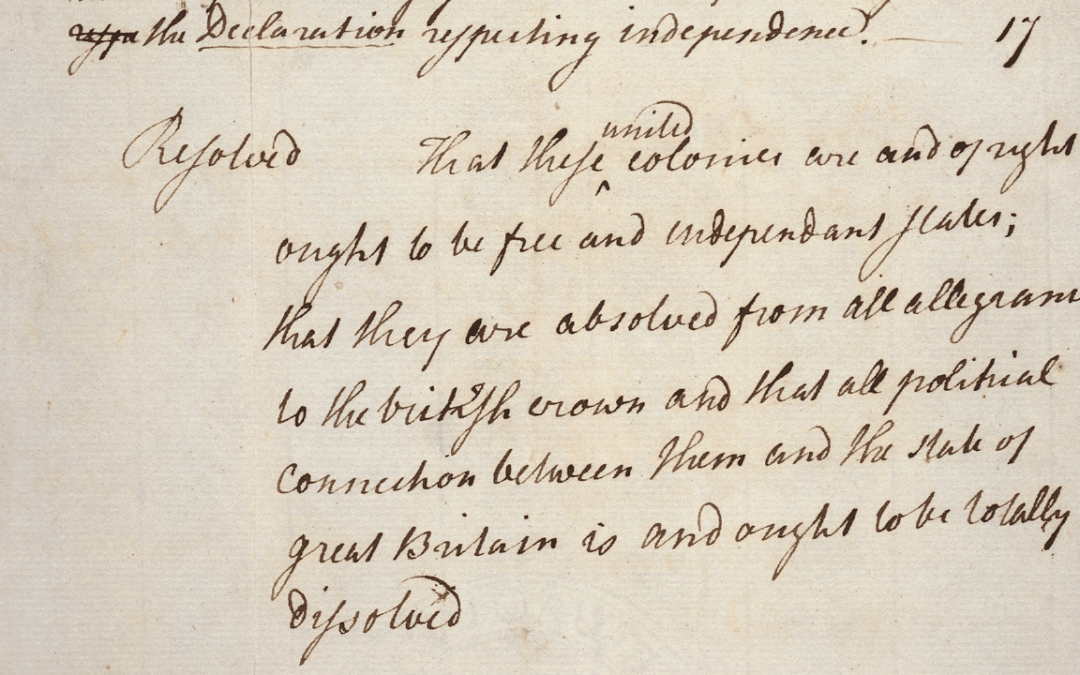 the Declaration respecting independence. — 17
united
Resolved That these ^ colonies are and of right
ought to be free and independant states;
that they are absolved from all allegiance
to the british crown and that all political
connection between them and the state of
great Britain is and ought to be totally
dissolved